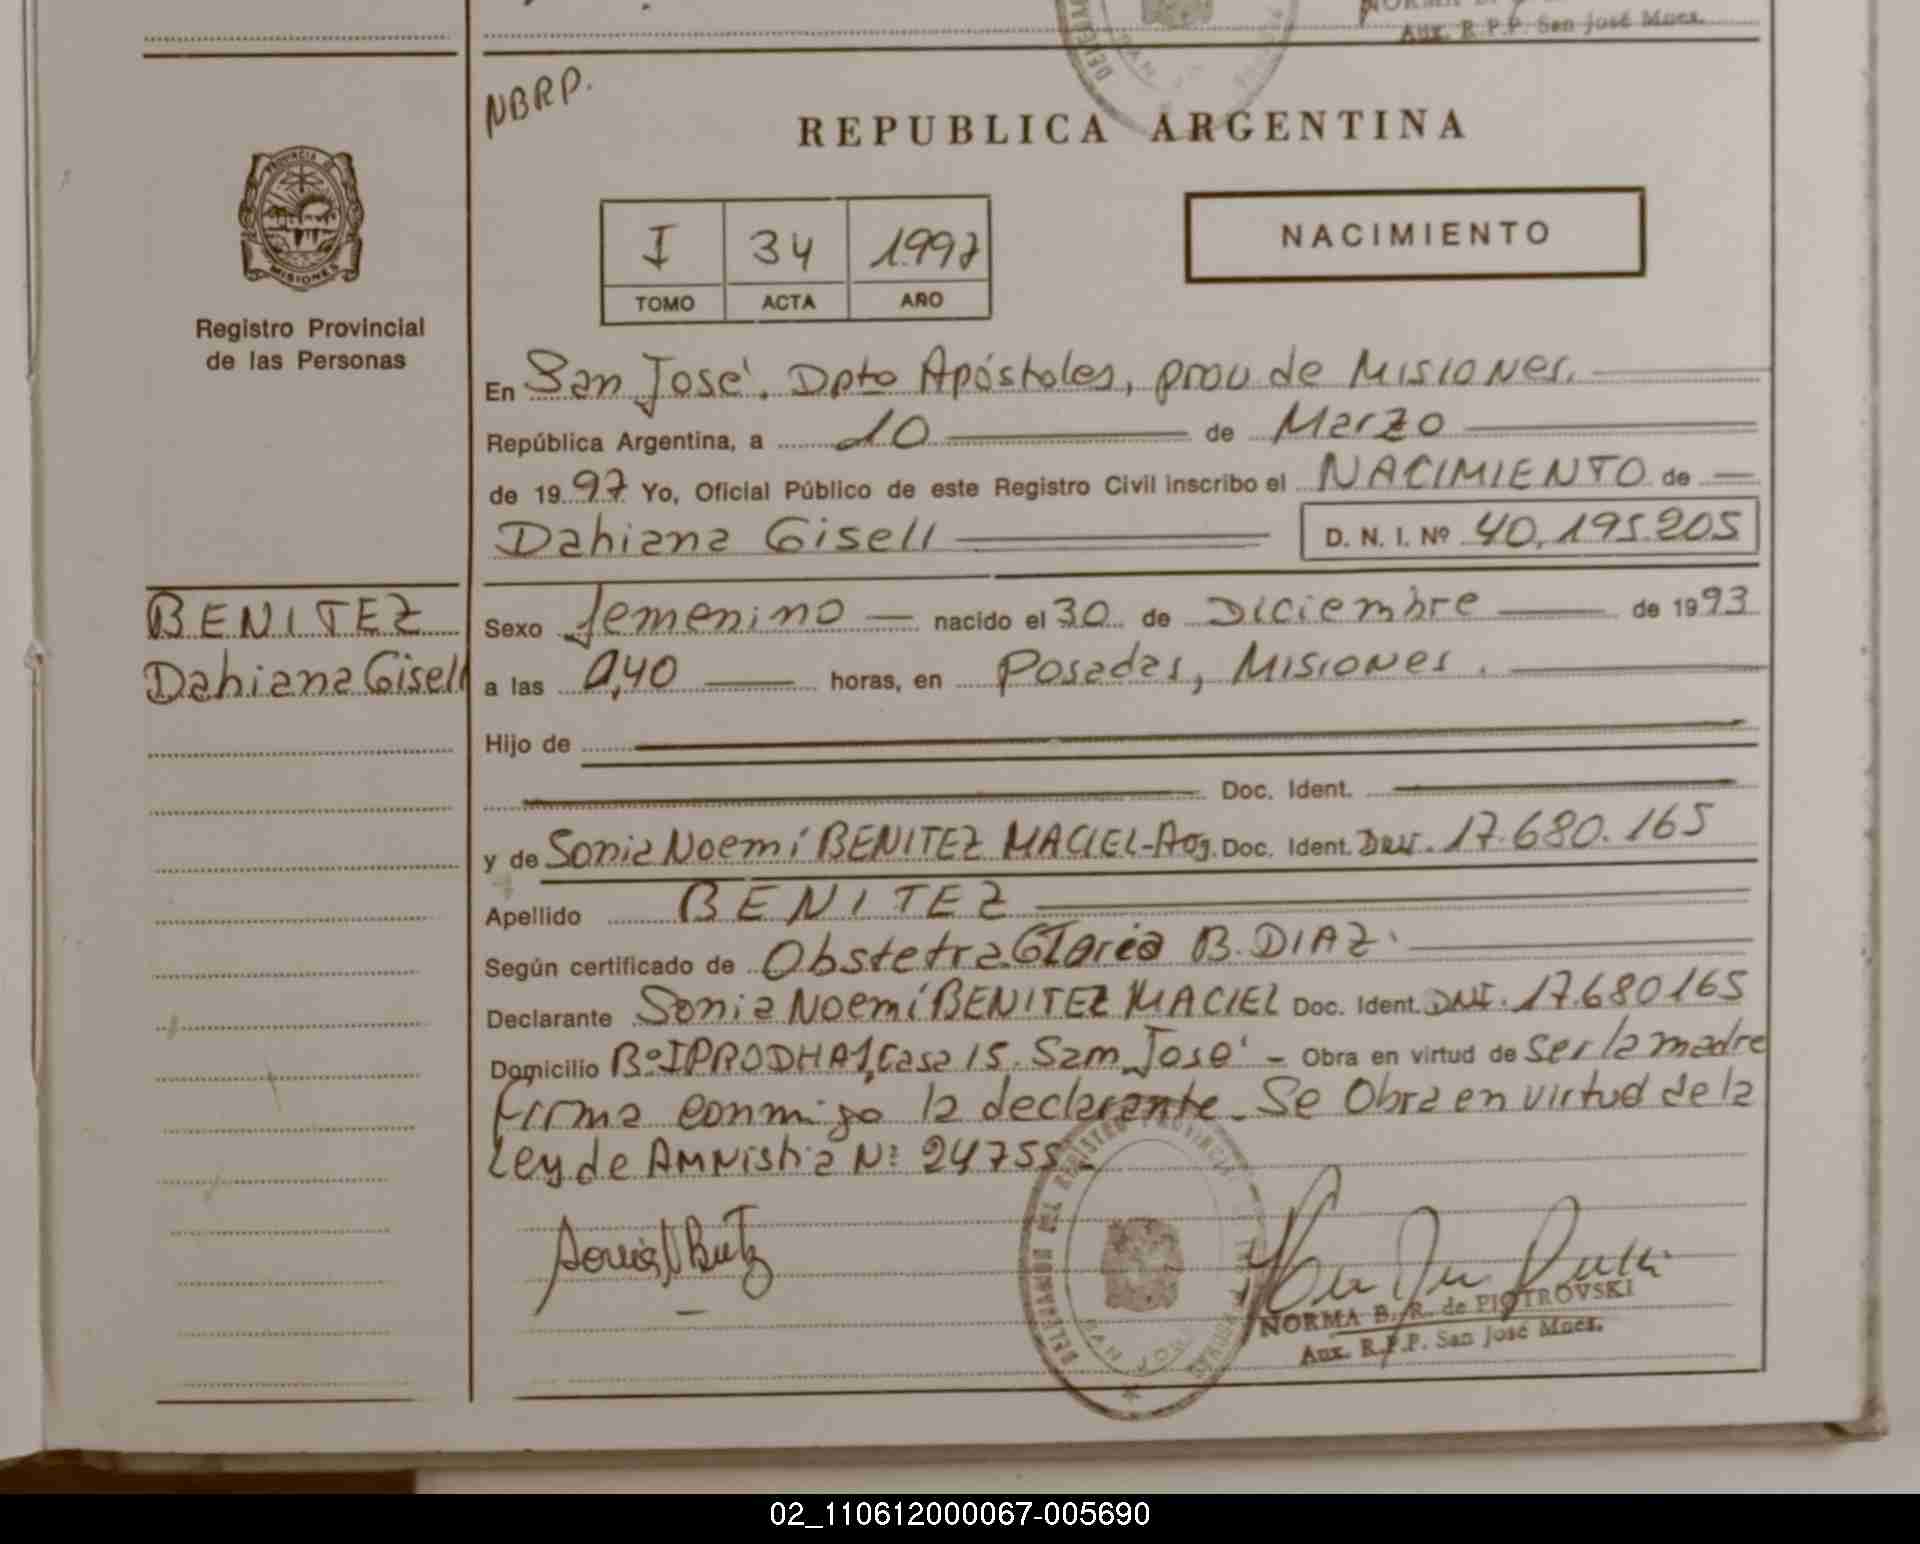 NORMA B.
Aux. R.P.P. San José Mnes.
NBRP.
REPUBLICA ARGENTINA
PROVINCIA DE
MISIONES
I 34 1997
TOMO ACTA AÑO
NACIMIENTO
Registro Provincial
de las Personas
En San José. Dpto Apóstoles, prov de Misiones.
República Argentina, a 10 de Marzo
de 1997 Yo, Oficial Público de este Registro Civil inscribo el NACIMIENTO de
Dahiana Gisell D. N. I. Nº 40.195.205
BENITEZ
Dahiana Gisell
Sexo femenino nacido el 30 de Diciembre de 1993
a las 0,40 horas, en Posadas, Misiones.
Hijo de
Doc. Ident.
y de Sonia Noemí BENITEZ MACIEL-Arg. Doc. Ident. DNI. 17.680.165
Apellido BENITEZ
Según certificado de Obstetra Gloria B. DIAZ.
Declarante Sonia Noemí BENITEZ MACIEL Doc. Ident. DNI. 17.680165
Domicilio Bº IPRODHA 1, Casa 15. San José - Obra en virtud de ser la madre
firma conmigo la declarante. Se Obra en virtud de la
Ley de Amnistia Nº 24755-
DELEGACION DEL REGISTRO PROVINCIAL DE LAS PERSONAS
SAN JOSE
NORMA B. R. de PIOTROVSKI
Aux. R.P.P. San José Mnes.
02_110612000067-005690